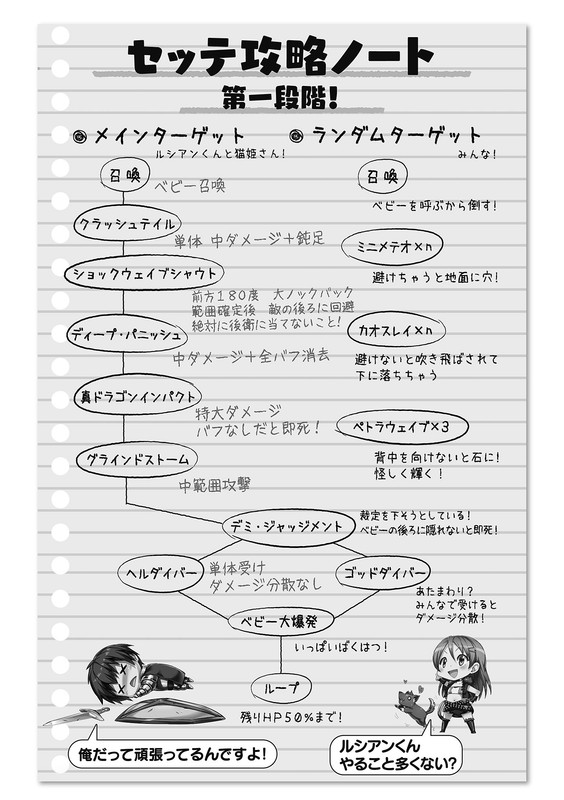 セッテ攻略ノート
第一段階!
メインターゲット
ルシアンくんと猫姫さん!
召喚
ベビー召喚
クラッシュテイル
単体 中ダメージ+鈍足
ショックウェイブシャウト
前方180度 大ノックバック
範囲確定後 敵の後ろに回避
絶対に後衛に当てないこと!
ディープ・パニッシュ
中ダメージ+全バフ消去
真ドラゴンインパクト
特大ダメージ
バフなしだと即死!
グラインドストーム
中範囲攻撃
ランダムターゲット
みんな!
召喚
ベビーを呼ぶから倒す!
ミニメテオ×n
避けちゃうと地面に穴!
カオスレイ×n
避けないと吹き飛ばされて
下に落ちちゃう
ペトラウェイブ×3
背中を向けないと石に!
怪しく輝く!
デミ・ジャッジメント
裁定を下そうとしている!
ベビーの後ろに隠れないと即死!
ヘルダイバー
単体受け
ダメージ分散なし
ゴッドダイバー
あたまわり?
みんなで受けると
ダメージ分散!
ベビー大爆発
いっぱいばくはつ!
ループ
残りHP50%まで!
俺だって頑張ってるんですよ!
ルシアンくん
やること多くない?